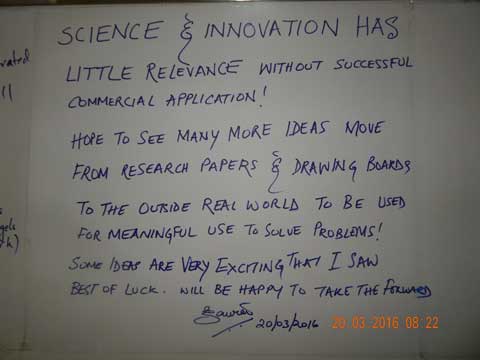 SCIENCE & INNOVATION HAS
LITTLE RELEVANCE WITHOUT SUCCESSFUL
COMMERCIAL APPLICATION!
HOPE TO SEE MANY MORE IDEAS MOVE
FROM RESEARCH PAPERS & DRAWING BOARDS
TO THE OUTSIDE REAL WORLD TO BE USED
FOR MEANINGFUL USE TO SOLVE PROBLEMS!
SOME IDEAS ARE VERY EXCITING THAT I SAW
BEST OF LUCK. WILL BE HAPPY TO TAKE THE FORWARD
20/03/2016
20.03.2016 08:22